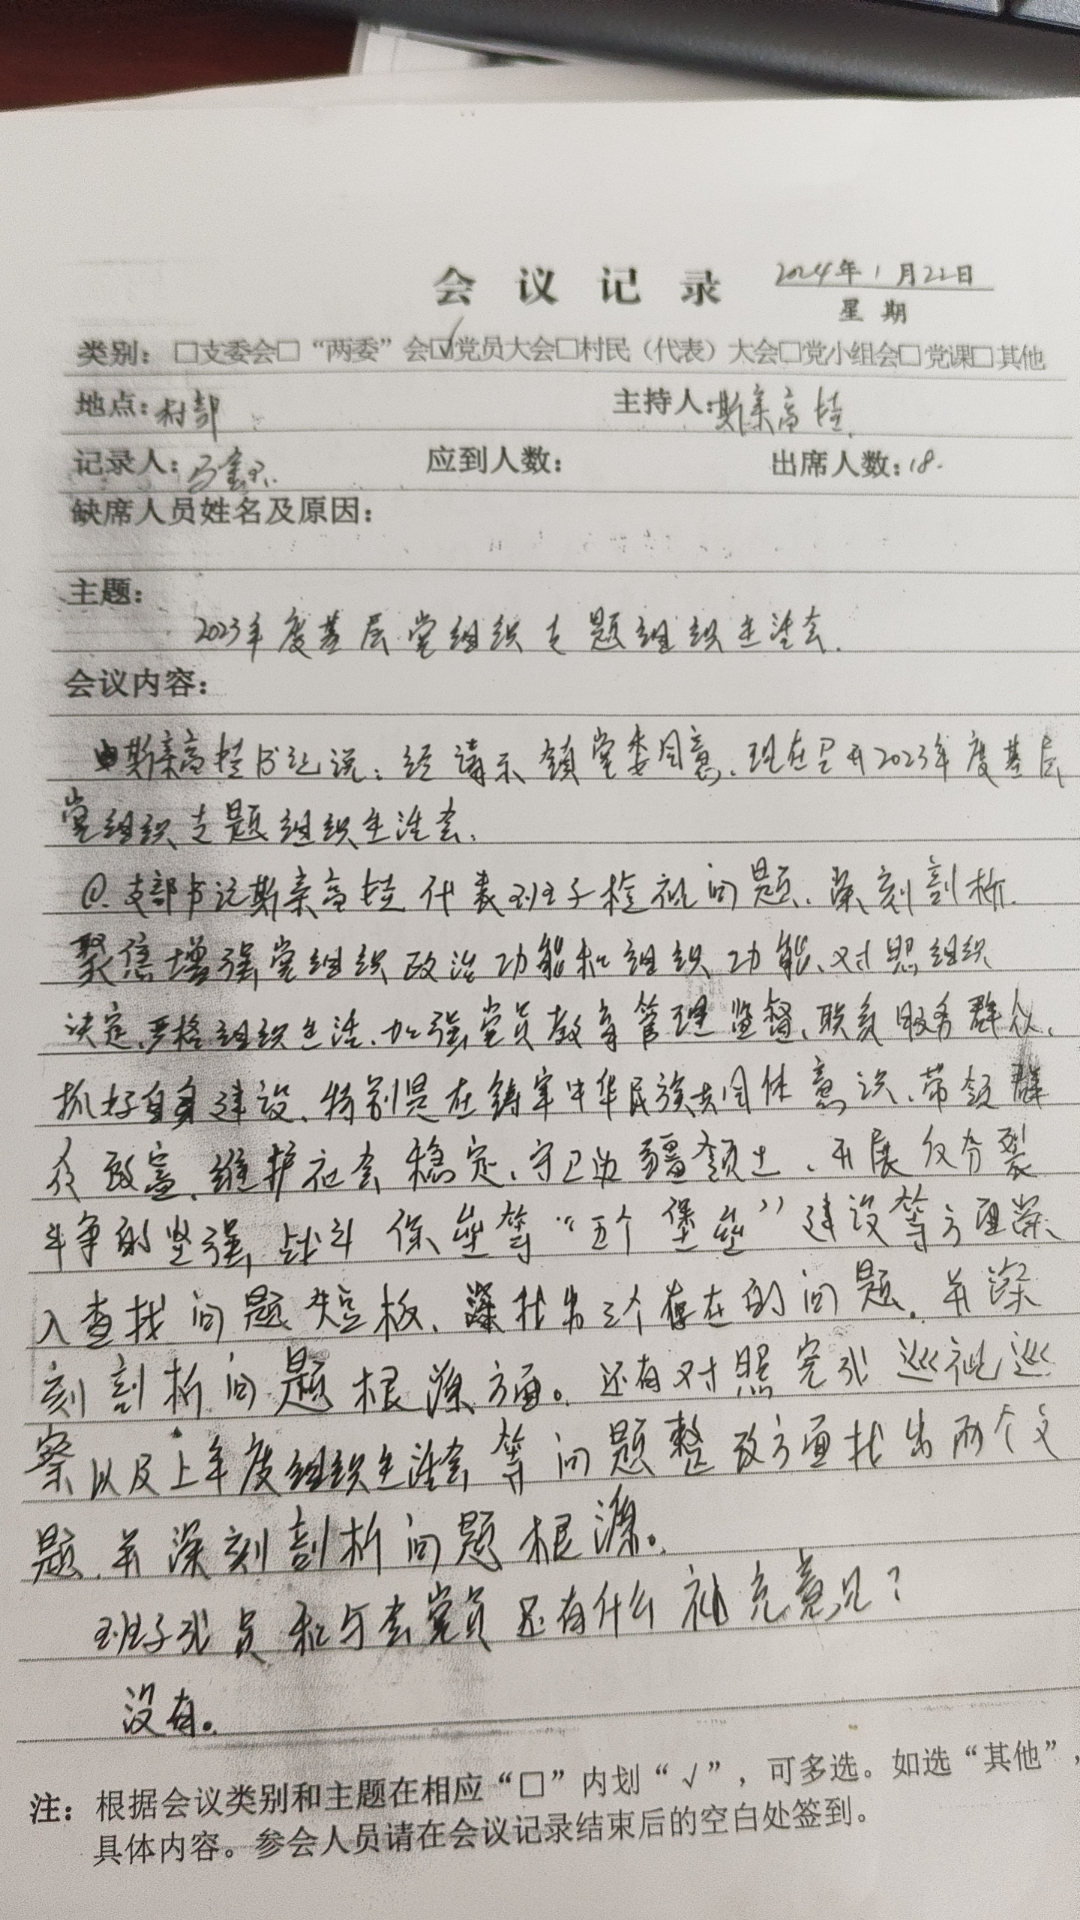 会议记录 2024年1月22日
星期
类别：□支委会□“两委”会☑党员大会□村民（代表）大会□党小组会□党课□其他
地点：村部 主持人：斯琴高娃
记录人： 应到人数： 出席人数：18.
缺席人员姓名及原因：
主题：
2023年度基层党组织专题组织生活会.
会议内容：
斯琴高娃书记说：经请示镇党委同意、现在召开2023年度基层
党组织专题组织生活会.
①.支部书记斯琴高娃代表班子检视问题、深刻剖析.
聚焦增强党组织政治功能和组织功能、对照组织
决定、严格组织生活、加强党员教育管理监督、联系服务群众、
抓好自身建设、特别是在铸牢中华民族共同体意识、带领群
众致富、维护社会稳定、守卫边疆领土、开展反分裂
斗争的坚强战斗保垒等“五个堡垒”建设等方面深
入查找问题短板、深找出三个存在的问题。并深
刻剖析问题根源方面。还有对照完成巡视巡
察以及上年度组织生活会等问题整改方面找出两个文
题.并深刻剖析问题根源。
班子成员和与会党员还有什么补充意见？
没有。
注：根据会议类别和主题在相应“□”内划“√”，可多选。如选“其他”，
具体内容。参会人员请在会议记录结束后的空白处签到。